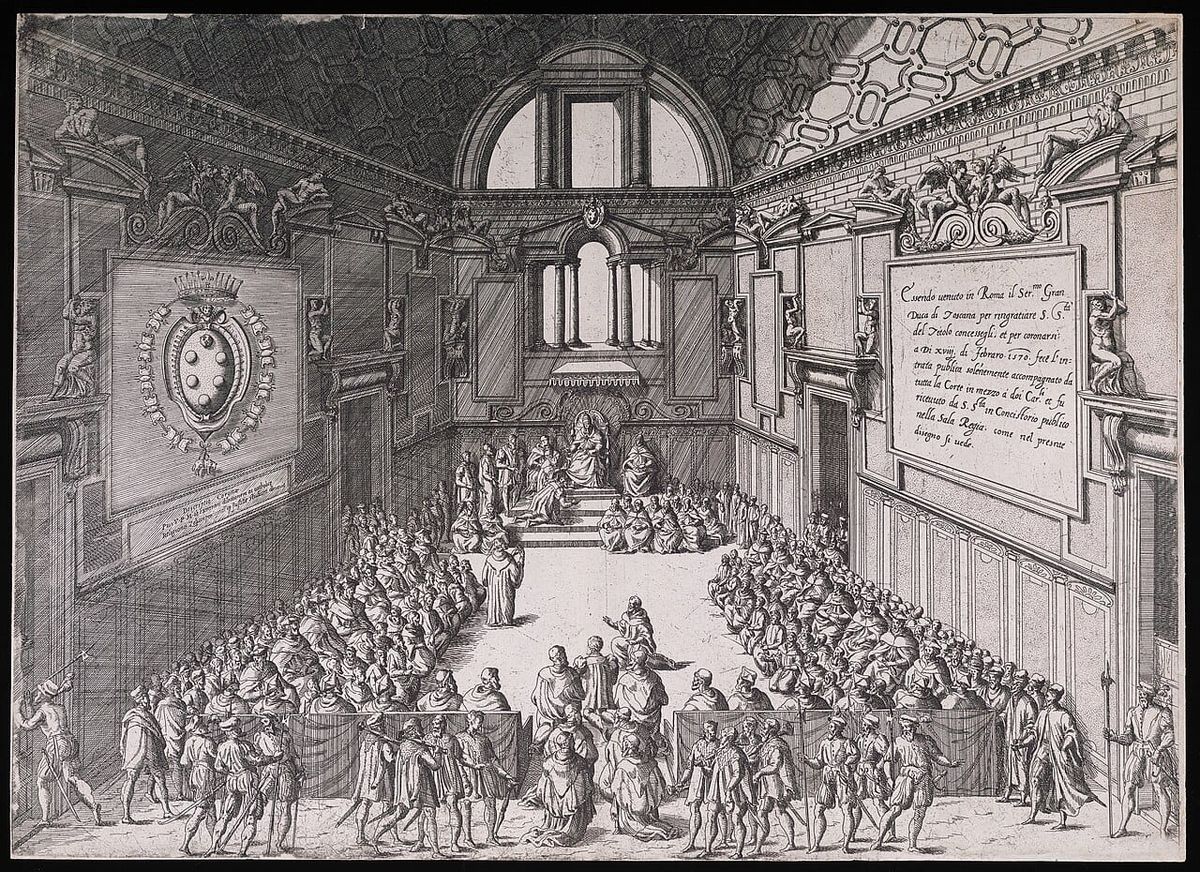 Essendo uenuto in Roma il Ser.mo Gran
Duca di Toscana per ringratiare S. S.tà
del Titolo concessogli, et per coronarsi
a Di xviij di febraro 1570. fece l'in-
trata publica solenemente accompagnato da
tutta la Corte in mezzo a doi Car.li et fu
riceuuto da S. S.tà in Concistorio publico
nella Sala Regia. come nel presente
disegno si uede.